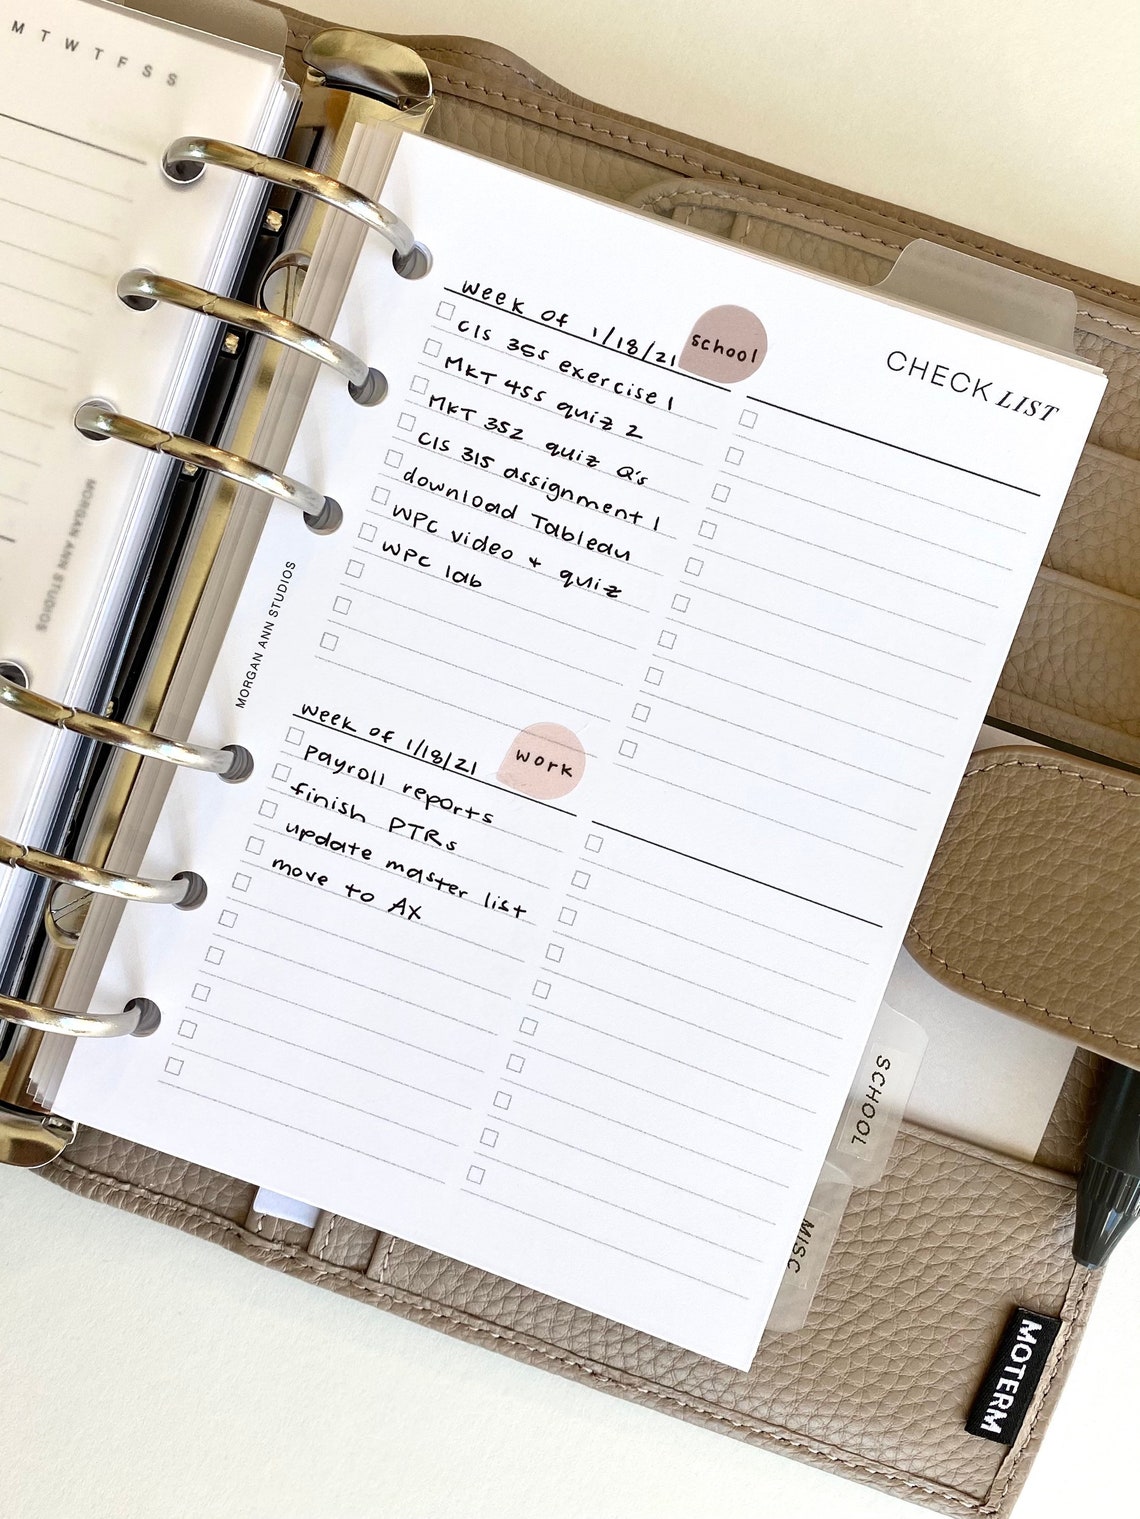 M T W T F S S
MORGAN ANN STUDIOS
CHECK LIST
week of 1/18/21 school
CIS 355 exercise 1
MKT 455 quiz 2
MKT 352 quiz Q's
CIS 315 assignment 1
download Tableau
WPC video + quiz
WPC lab
MORGAN ANN STUDIOS
week of 1/18/21 work
payroll reports
finish PTRs
update master list
move to AX
SCHOOL
MISC
MOTERM